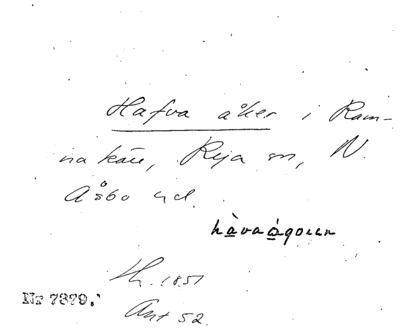 Hafva åker i Ram-
na kärr, Rya sn, N.
Åsbo hd.
hàvaógoun
Th. 1851
Ant 52
Nr 7879.